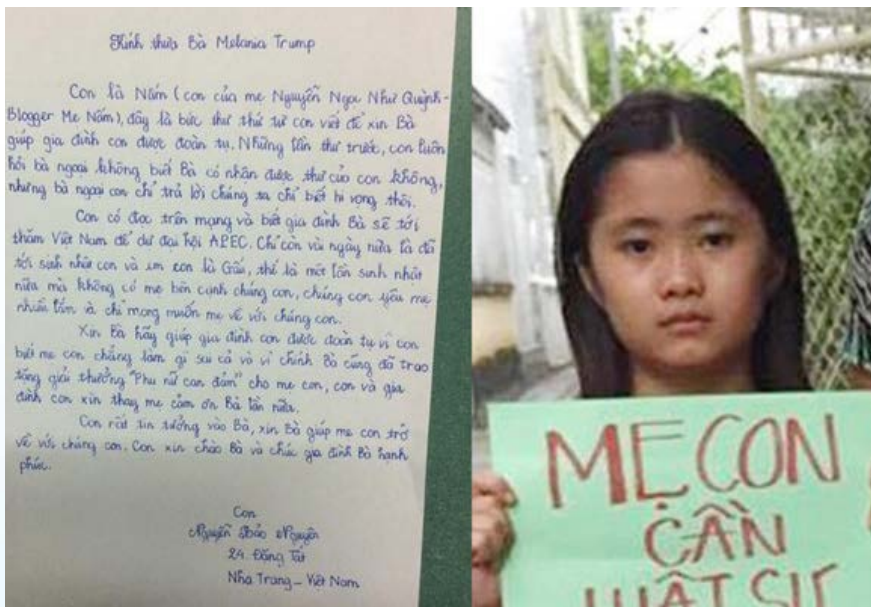 Kính thưa Bà Melania Trump
Con là Nấm (con của mẹ Nguyễn Ngọc Như Quỳnh-
Blogger Mẹ Nấm), đây là bức thư thứ tư con viết để xin Bà
giúp gia đình con được đoàn tụ. Những lần thư trước, con luôn
hỏi bà ngoại không biết Bà có nhận được thư của con không,
nhưng bà ngoại con chỉ trả lời chúng ta chỉ biết hi vọng thôi.
Con có đọc trên mạng và biết gia đình Bà sẽ tới
thăm Việt Nam để dự đại hội APEC. Chỉ còn vài ngày nữa là đã
tới sinh nhật con và em con là Gấu, thế là một lần sinh nhật
nữa mà không có mẹ bên cạnh chúng con, chúng con yêu mẹ
nhiều lắm và chỉ mong muốn mẹ về với chúng con.
Xin Bà hãy giúp gia đình con được đoàn tụ vì con
biết mẹ con chẳng làm gì sai cả và vì chính Bà cũng đã trao
tặng giải thưởng "Phụ nữ can đảm" cho mẹ con, con và gia
đình con xin thay mẹ cảm ơn Bà lần nữa.
Con rất tin tưởng vào Bà, xin Bà giúp mẹ con trở
về với chúng con. Con xin chào Bà và chúc gia đình Bà hạnh
phúc.
Con
Nguyễn Bảo Nguyên
24. Đặng Tất
Nha Trang - Việt Nam
MẸ CON
CẦN
LUẬT SƯ